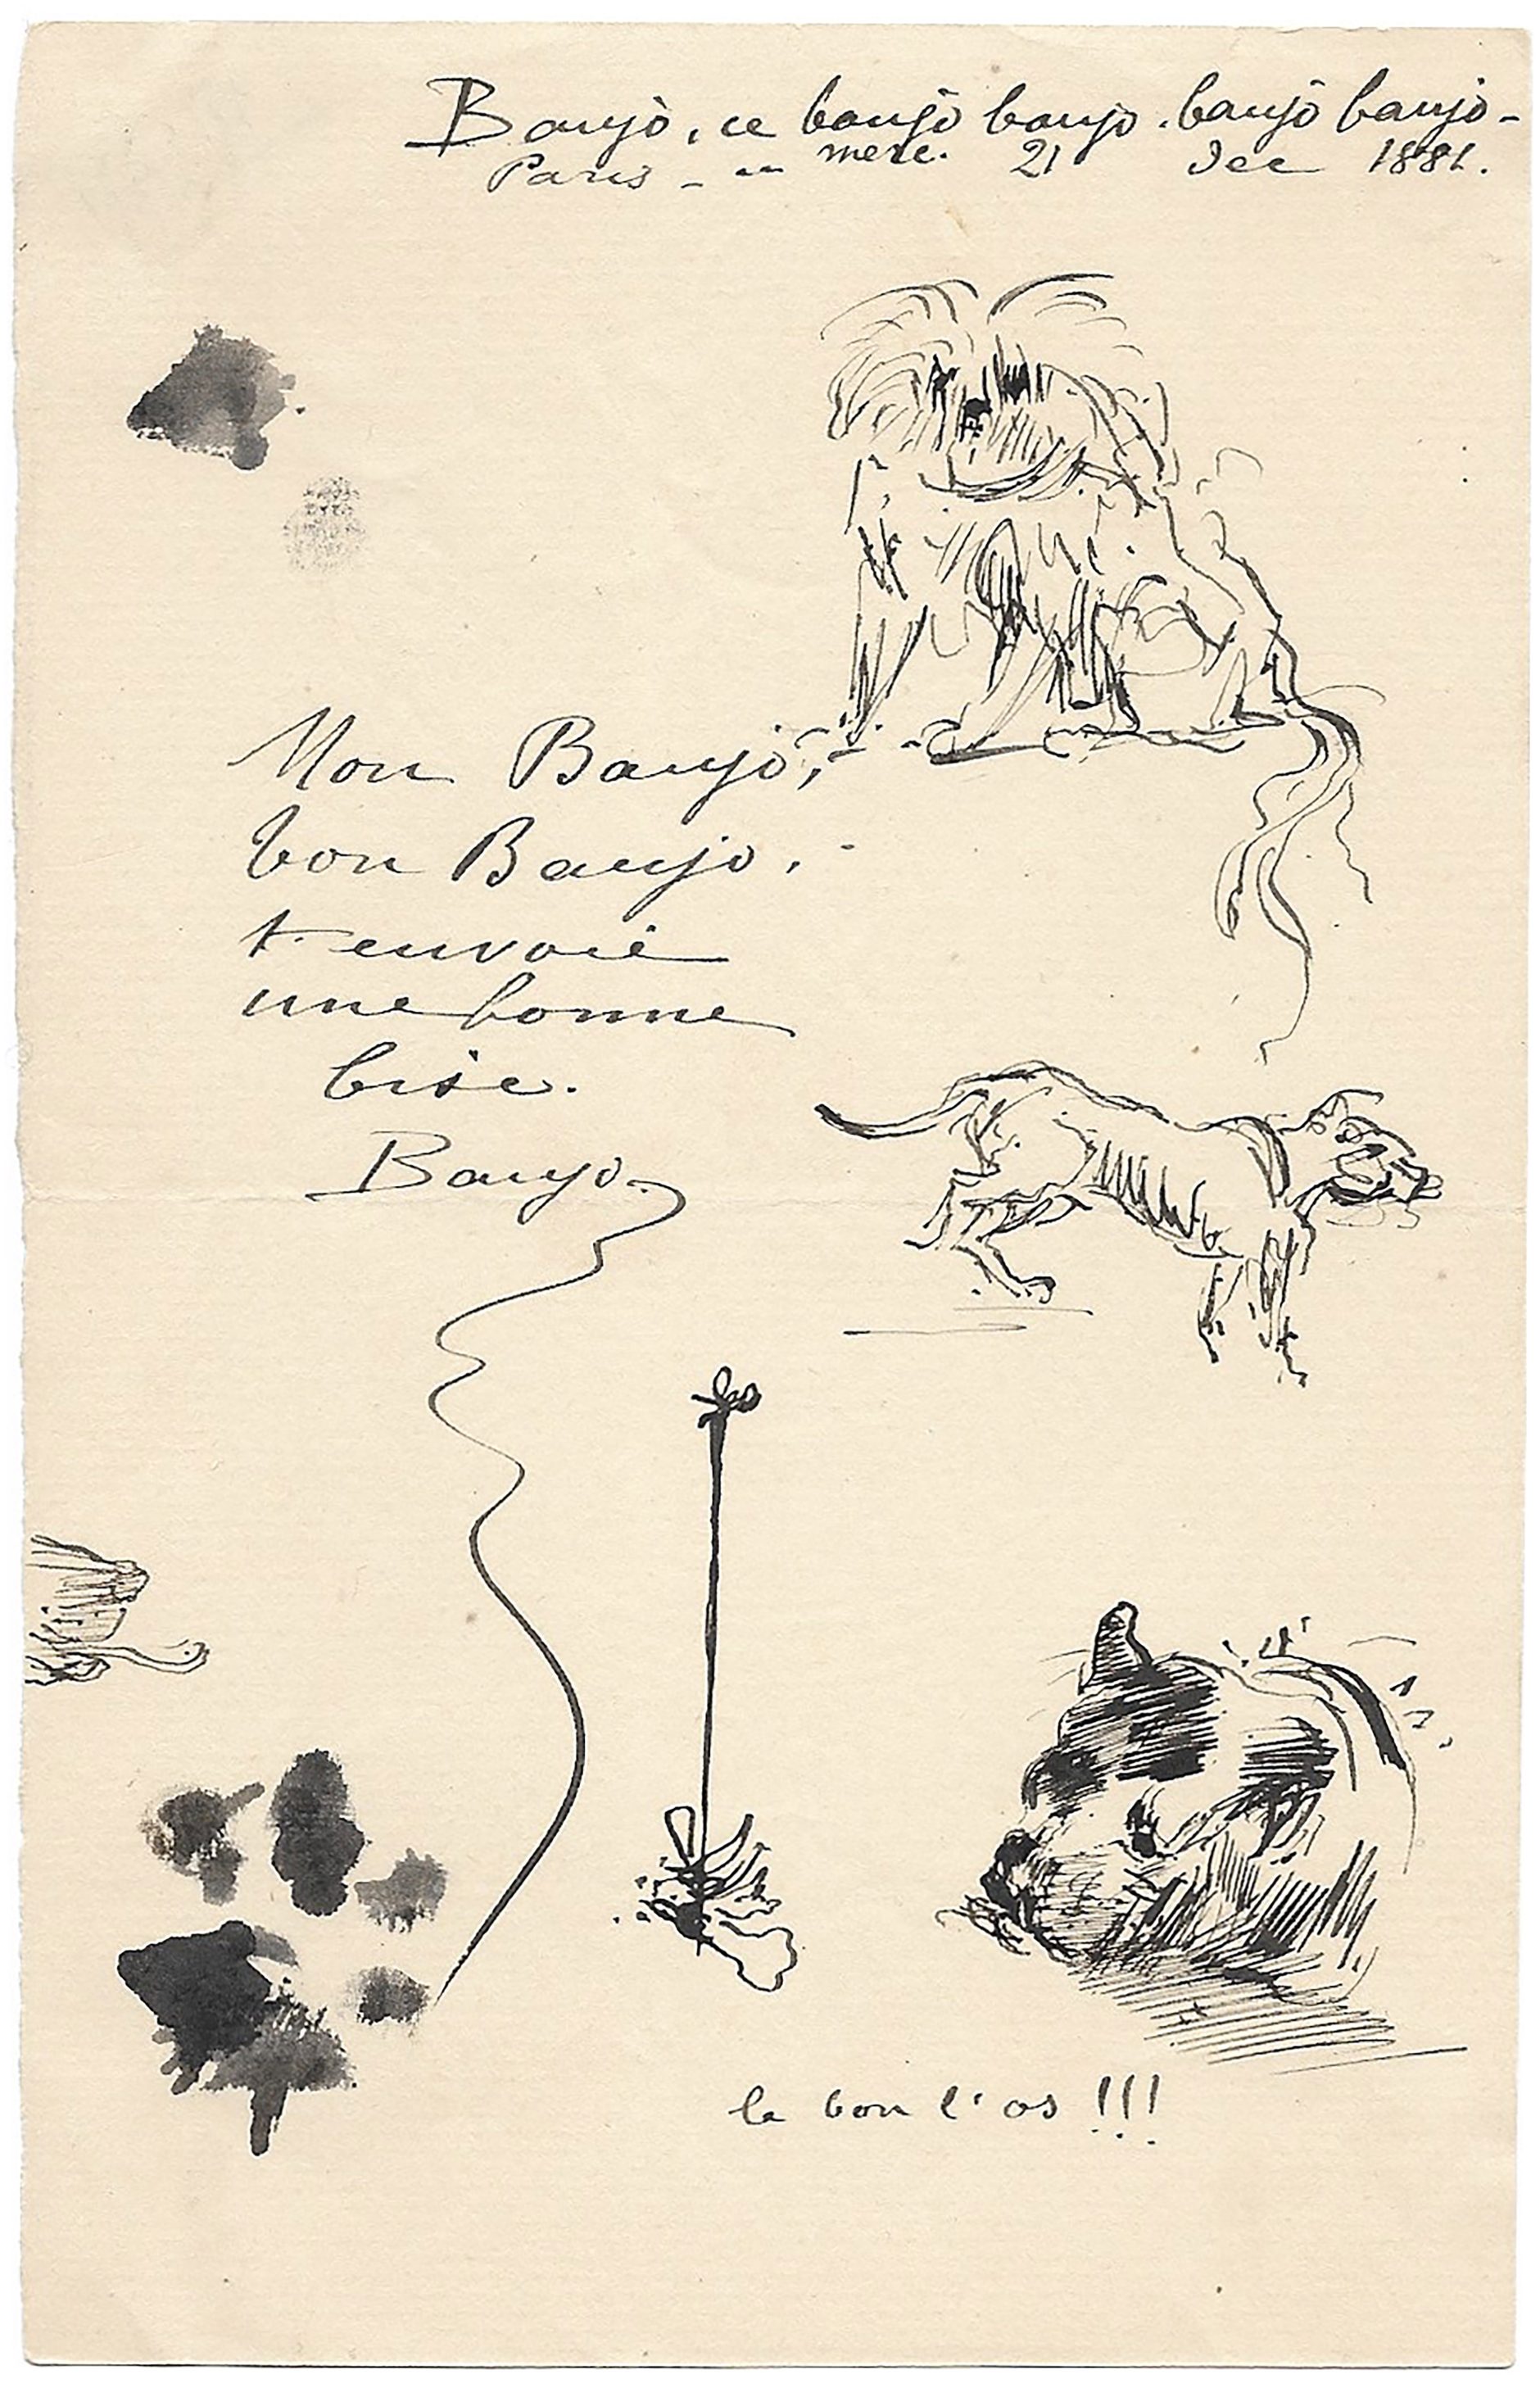 Banjo, ce banjo banjo. banjo banjo -
Paris - - merc. 21 Dec 1881.
Mon Banjo,
bon Banjo.
t'envoie
une bonne
bise.
Banjo
le bon l'os !!!